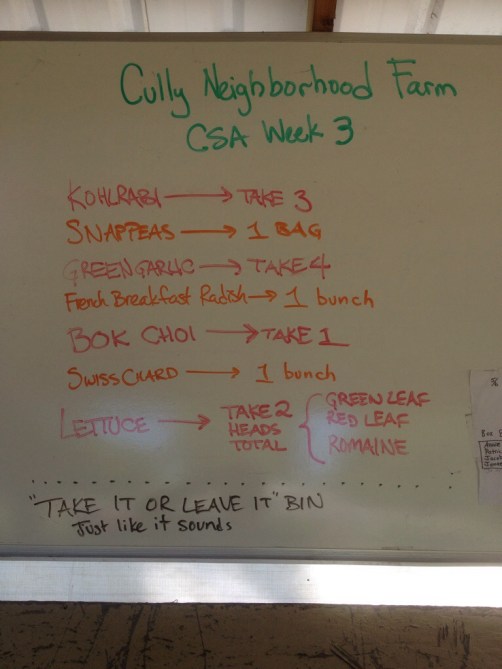 Cully Neighborhood Farm
CSA Week 3
KOHLRABI → TAKE 3
SNAPPEAS → 1 BAG
GREENGARLIC → TAKE 4
French Breakfast Radish → 1 bunch
BOK CHOI → TAKE 1
SWISS CHARD → 1 bunch
LETTUCE → TAKE 2 HEADS TOTAL { GREEN LEAF
RED LEAF
ROMAINE
"TAKE IT OR LEAVE IT" BIN
Just like it sounds